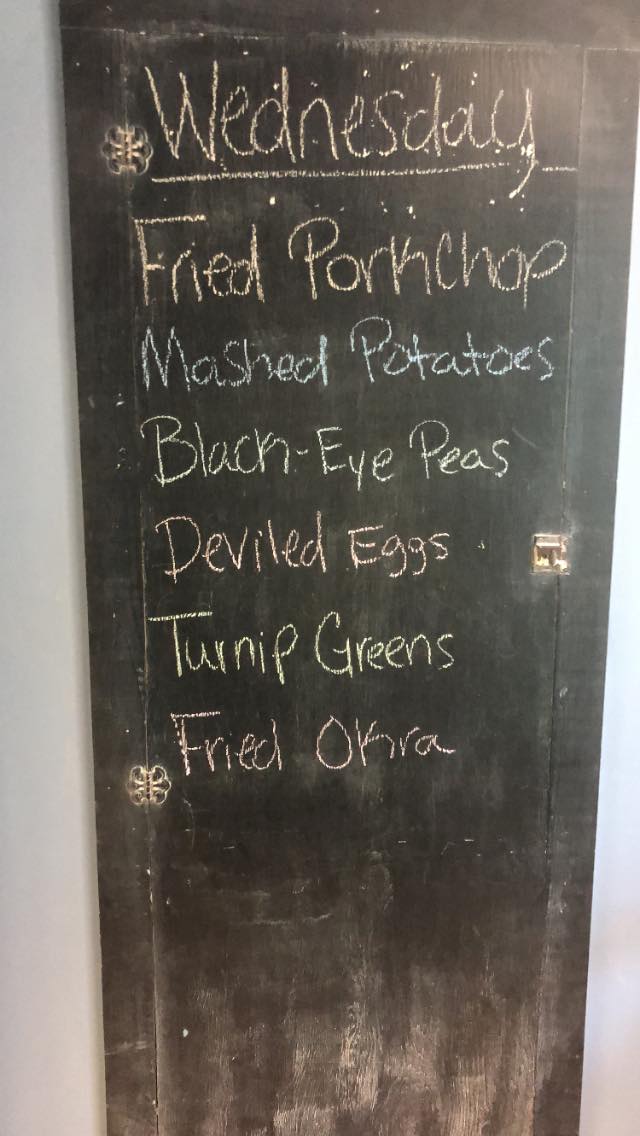 Wednesday
Fried Porkchop
Mashed Potatoes
Black-Eye Peas
Deviled Eggs
Turnip Greens
Fried Okra